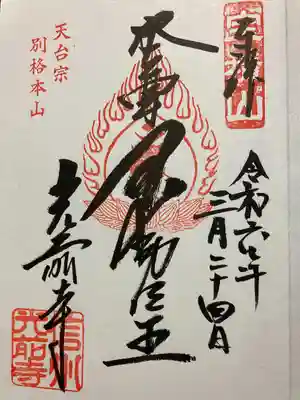 令和六年
三月二十四日
本尊
不動明王
天台宗
別格本山
光前寺
信州
光前寺